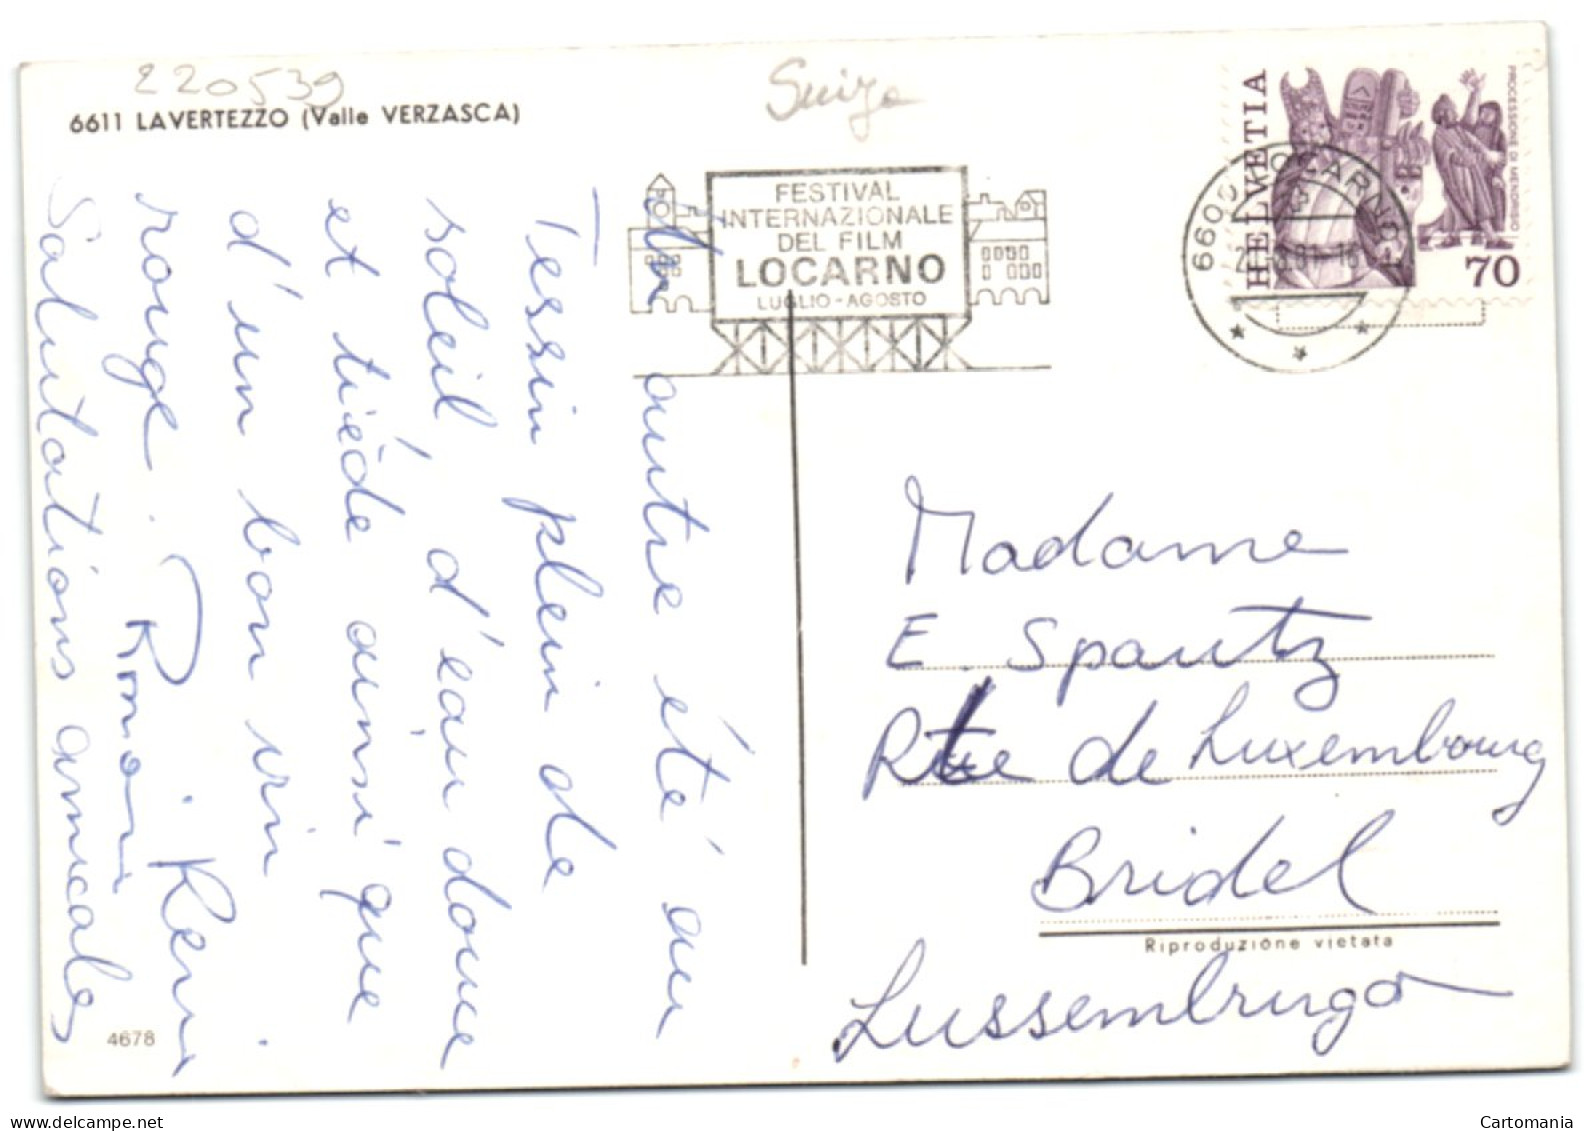 220539
6611 LAVERTEZZO (Valle VERZASCA)
Suiza
FESTIVAL
INTERNAZIONALE
DEL FILM
LOCARNO
LUGLIO - AGOSTO
6600 LOCARNO
HELVETIA
PROCESSIONE DI MENDRISIO
70
Un autre été au
Tessin plein de
soleil d'eau douce
et tiède ainsi que
d'un bon vin
rouge.
Salutations amicales
Madame
E. Spautz
Rte de Luxembourg
Bridel
Lussemburgo
Riproduzione vietata
4678
Cartomania